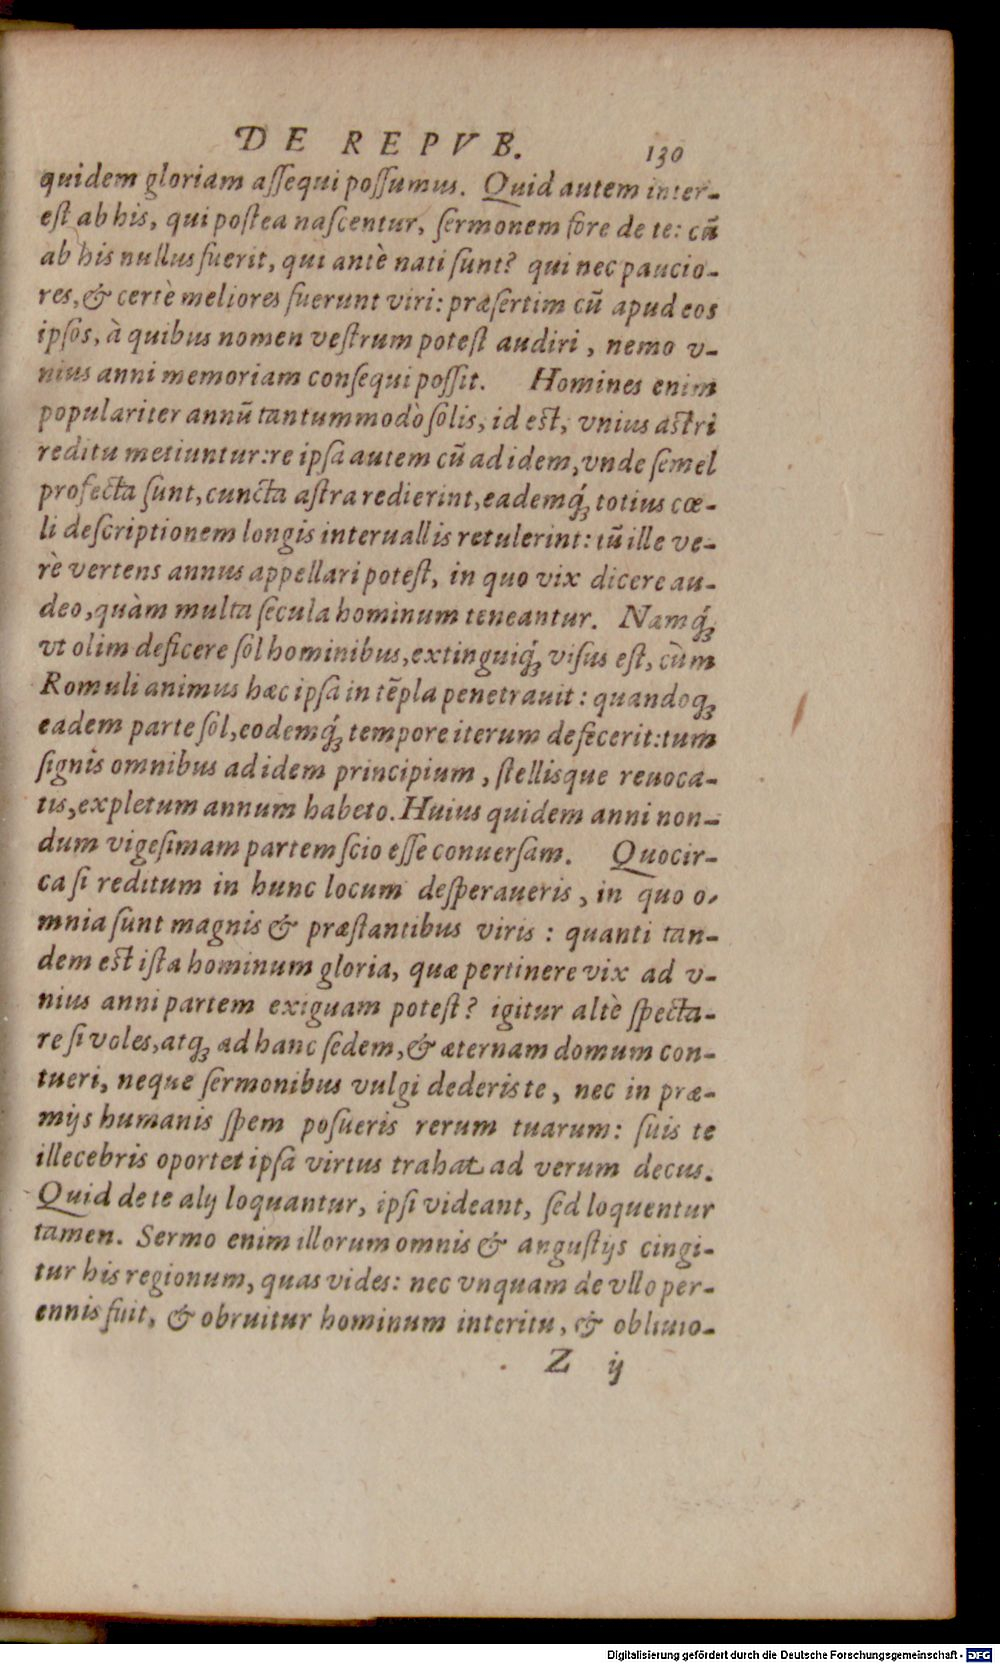 DE REPVB. 130
quidem gloriam aſſequi poſſumus. Quid autem inter-
eſt ab his, qui poſtea naſcentur, ſermonem fore de te: cũ
ab his nullus fuerit, qui antè nati ſunt? qui nec paucio-
res, & certè meliores fuerunt viri: præſertim cũ apud eos
ipſos, à quibus nomen veſtrum poteſt audiri, nemo v-
nius anni memoriam conſequi poſſit. Homines enim
populariter annũ tantummodò ſolis, id eſt, vnius aſtri
reditu metiuntur: re ipſa autem cũ ad idem, vnde ſemel
profecta ſunt, cuncta aſtra redierint, eademq́; totius cœ-
li deſcriptionem longis interuallis retulerint: tũ ille ve-
rè vertens annus appellari poteſt, in quo vix dicere au-
deo, quàm multa ſecula hominum teneantur. Namq́;
vt olim deficere ſol hominibus, extinguiq́; viſus eſt, cùm
Romuli animus hæc ipſa in tẽpla penetrauit: quandoq;
eadem parte ſol, eodemq́; tempore iterum defecerit: tum
ſignis omnibus ad idem principium, ſtellisque reuoca-
tis, expletum annum habeto. Huius quidem anni non-
dum vigeſimam partem ſcio eſſe conuerſam. Quocir-
ca ſi reditum in hunc locum deſperaueris, in quo o-
mnia ſunt magnis & præſtantibus viris: quanti tan-
dem eſt iſta hominum gloria, quæ pertinere vix ad v-
nius anni partem exiguam poteſt? igitur altè ſpecta-
re ſi voles, atq; ad hanc ſedem, & æternam domum con-
tueri, neque ſermonibus vulgi dederis te, nec in præ-
mijs humanis ſpem poſueris rerum tuarum: ſuis te
illecebris oportet ipſa virtus trahat ad verum decus.
Quid de te alij loquantur, ipſi videant, ſed loquentur
tamen. Sermo enim illorum omnis & anguſtijs cingi-
tur his regionum, quas vides: nec vnquam de vllo per-
ennis fuit, & obruitur hominum interitu, & obliuio-
Z ij
Digitalisierung gefördert durch die Deutsche Forschungsgemeinschaft - DFG